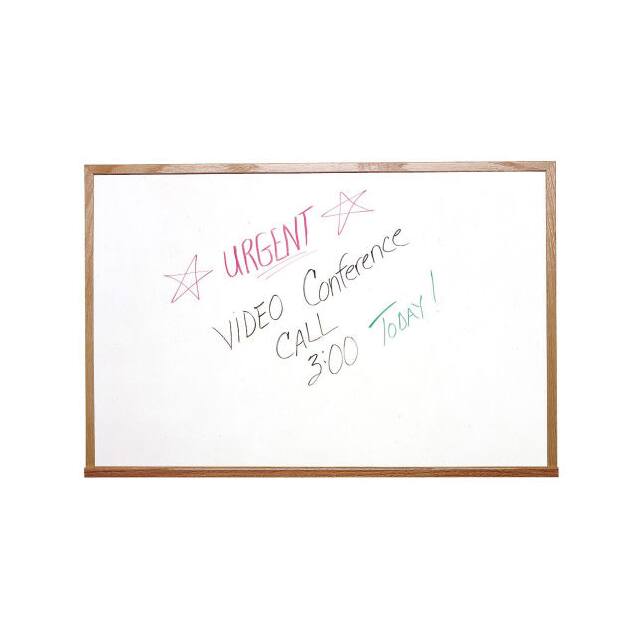 URGENT
ViDEO Conference
CALL
3:00 TODAY!